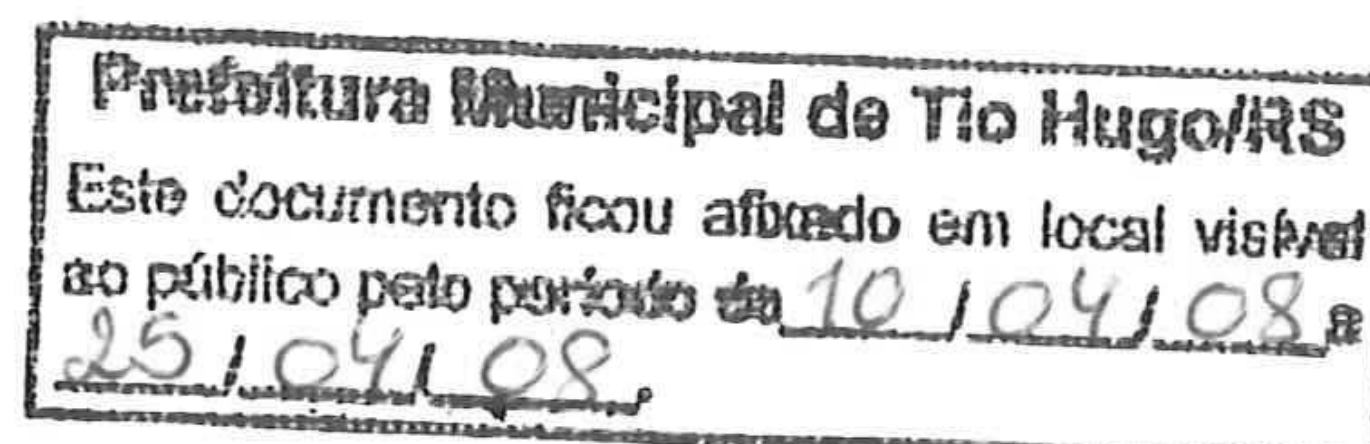 Prefeitura Municipal de Tio Hugo/RS
Este documento ficou afixado em local visível
ao público pelo período de 10/04/08 a
25/04/08.